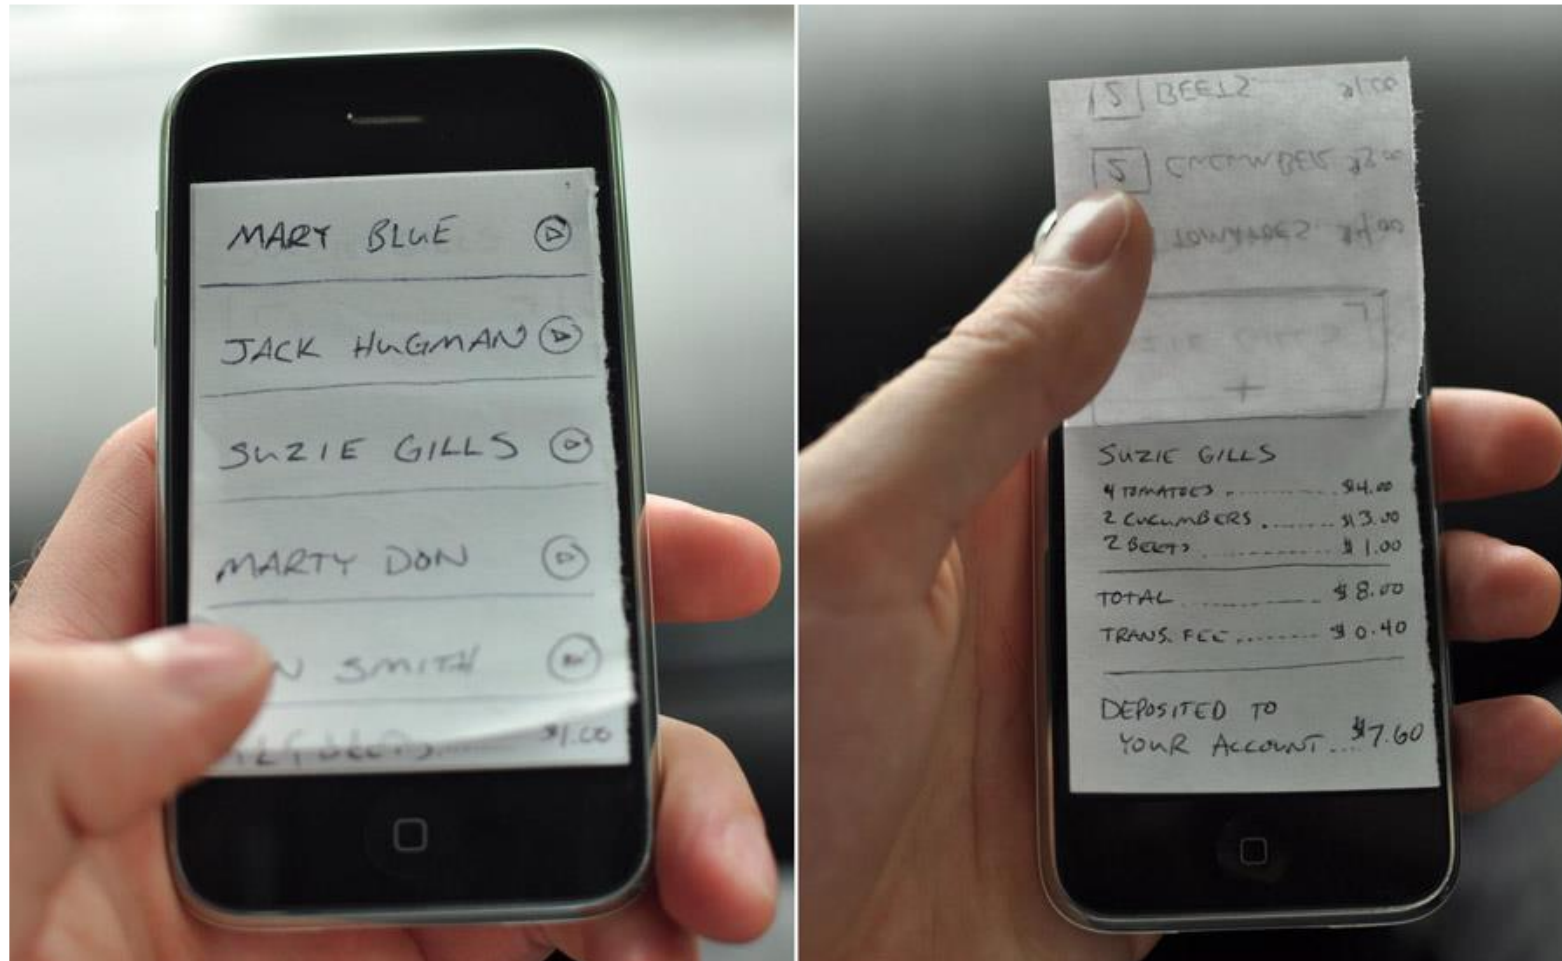 MARY BLUE
JACK HUGMAN
SUZIE GILLS
MARTY DON
SMITH
$1.00
2 BEETS $1.00
2 CUCUMBER $3.00
TOMATOES $4.00
SUZIE GILLS
4 TOMATOES ........ $4.00
2 CUCUMBERS ...... $3.00
2 BEETS ........ $1.00
TOTAL ........ $8.00
TRANS. FEE ........ $0.40
DEPOSITED TO
YOUR ACCOUNT ... $7.60